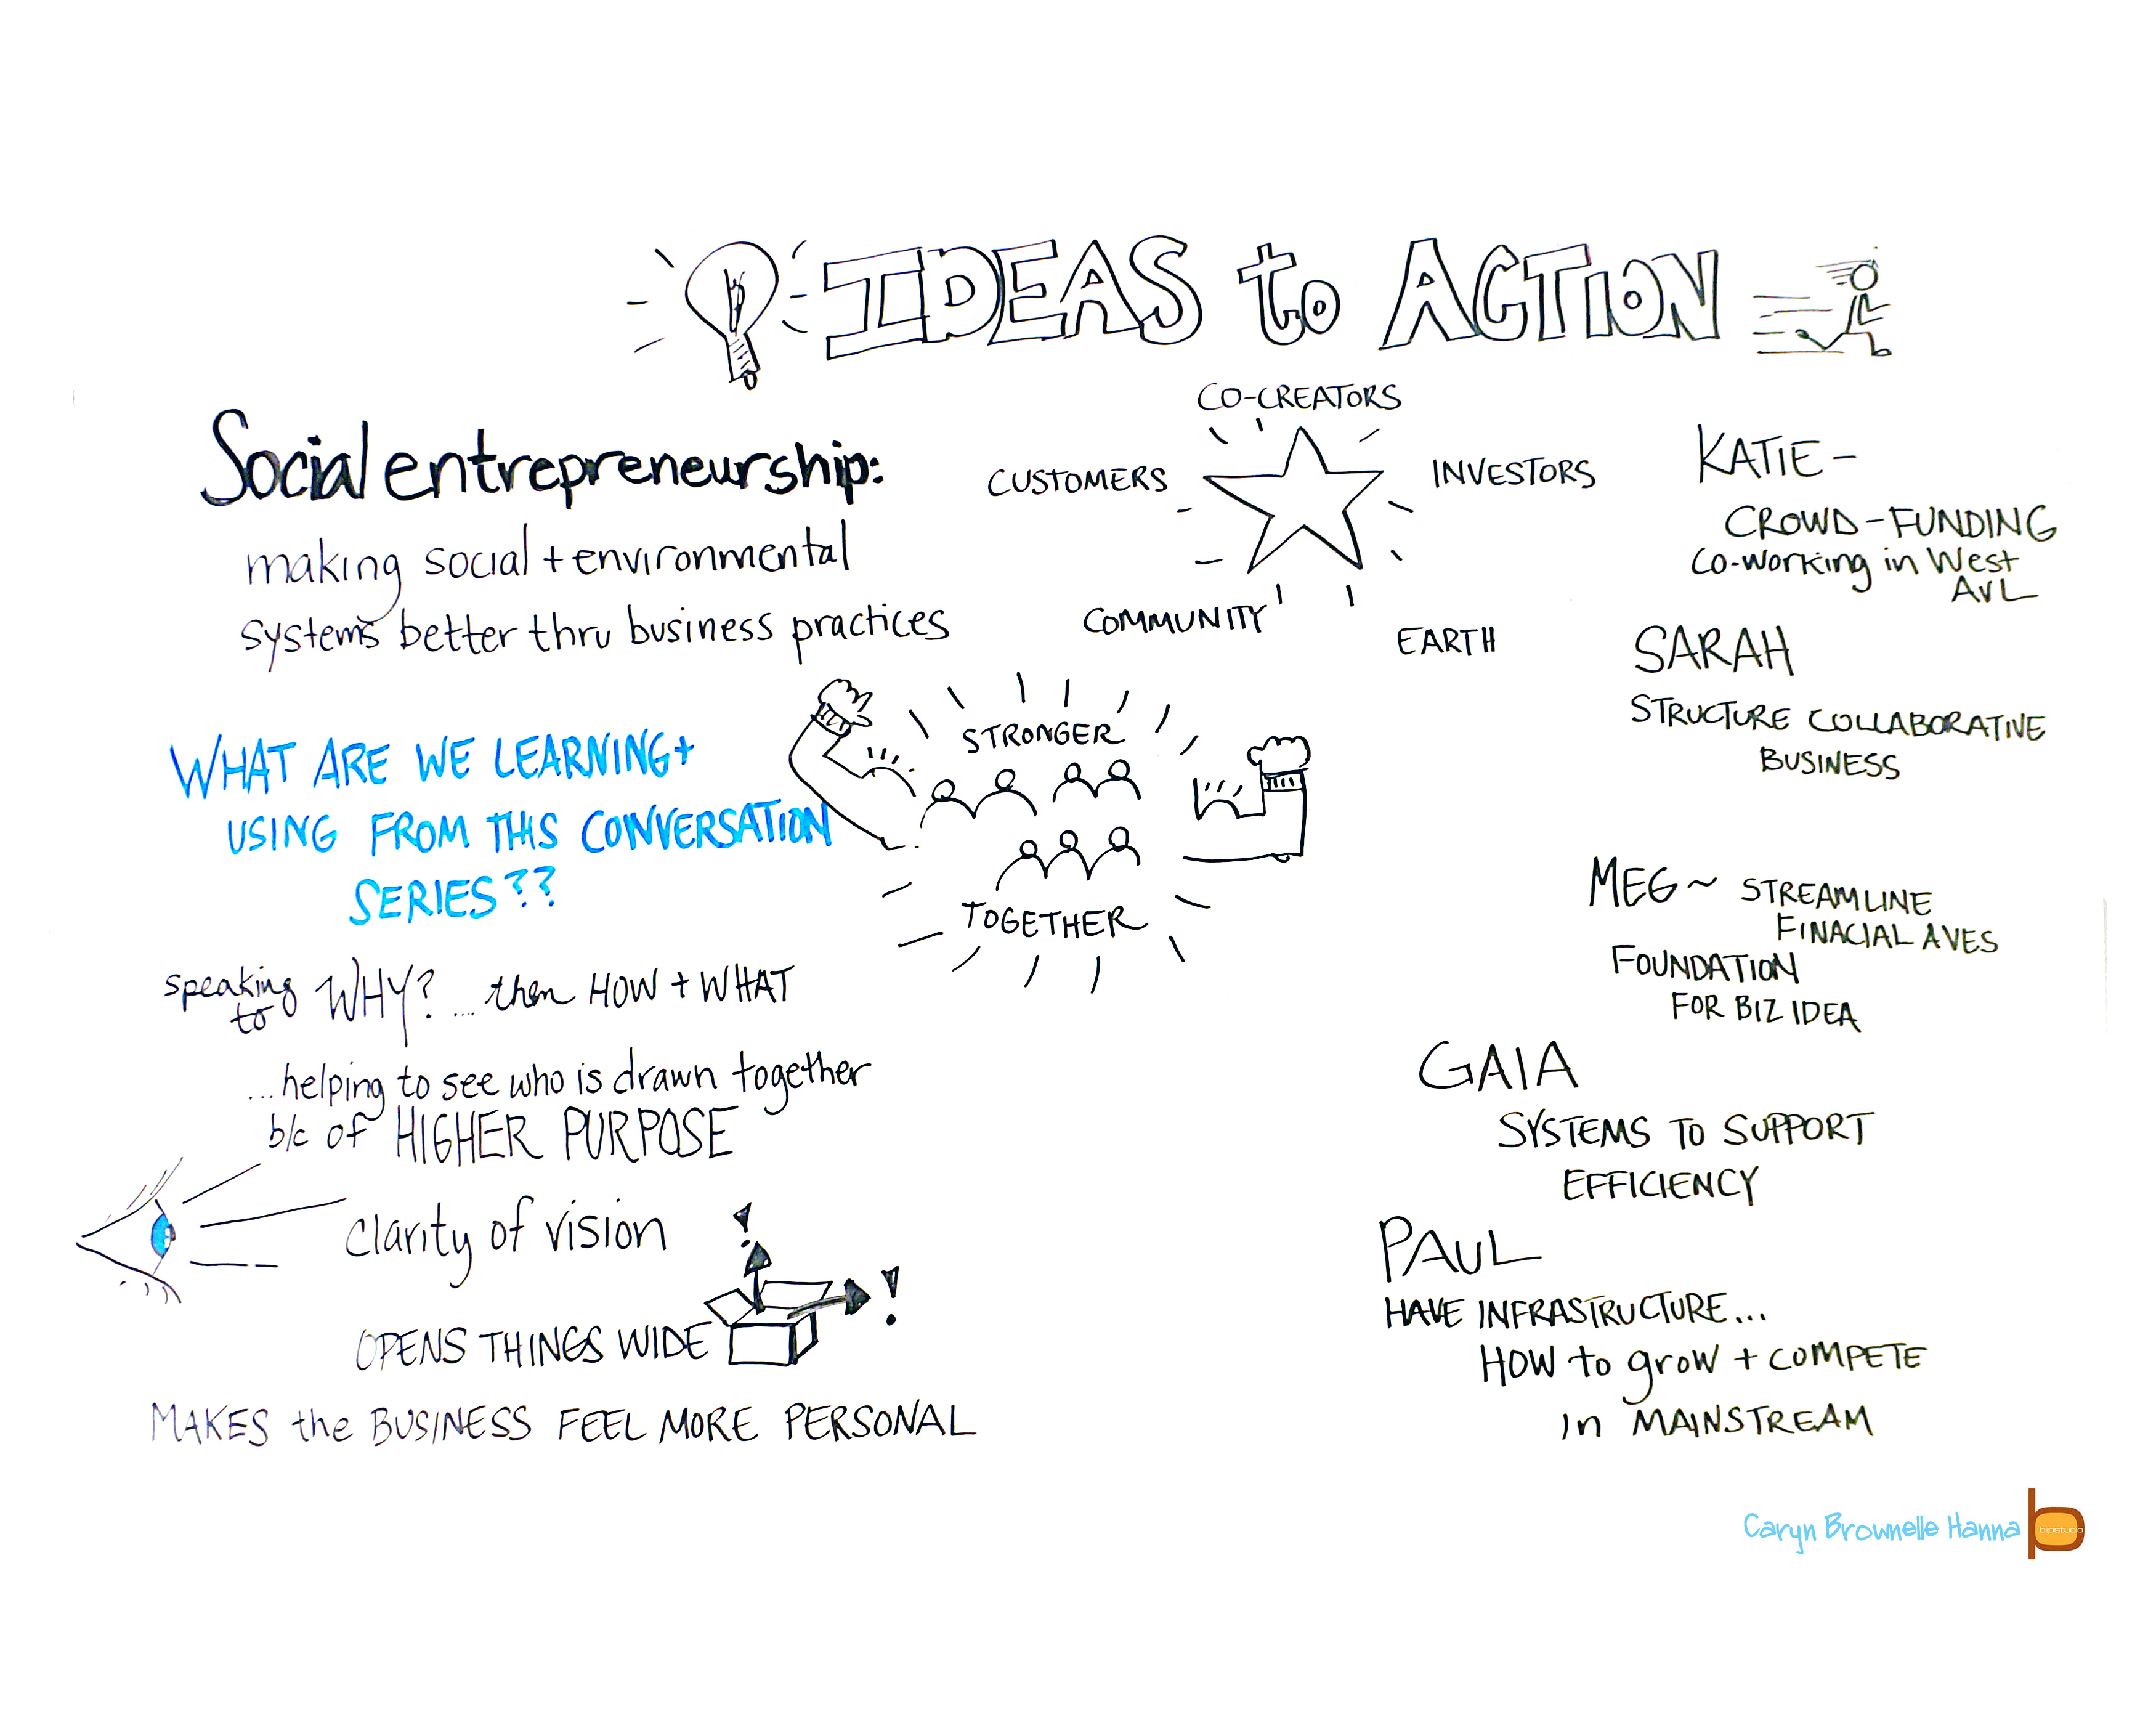 IDEAS to ACTION
Social entrepreneurship:
making social + environmental
systems better thru business practices
CO-CREATORS
CUSTOMERS
INVESTORS
COMMUNITY
EARTH
WHAT ARE WE LEARNING +
USING FROM THIS CONVERSATION
SERIES??
STRONGER
TOGETHER
speaking to WHY? .... then HOW + WHAT
...helping to see who is drawn together
b/c of HIGHER PURPOSE
clarity of vision
OPENS THINGS WIDE
MAKES the BUSINESS FEEL MORE PERSONAL
KATIE -
CROWD-FUNDING
CO-WORKING in WEST
AVL
SARAH
STRUCTURE COLLABORATIVE
BUSINESS
MEG ~ STREAMLINE
FINACIAL AVES
FOUNDATION
FOR BIZ IDEA
GAIA
SYSTEMS TO SUPPORT
EFFICIENCY
PAUL
HAVE INFRASTRUCTURE...
HOW to grow + COMPETE
in MAINSTREAM
Caryn Brownelle Hanna
blipstudio